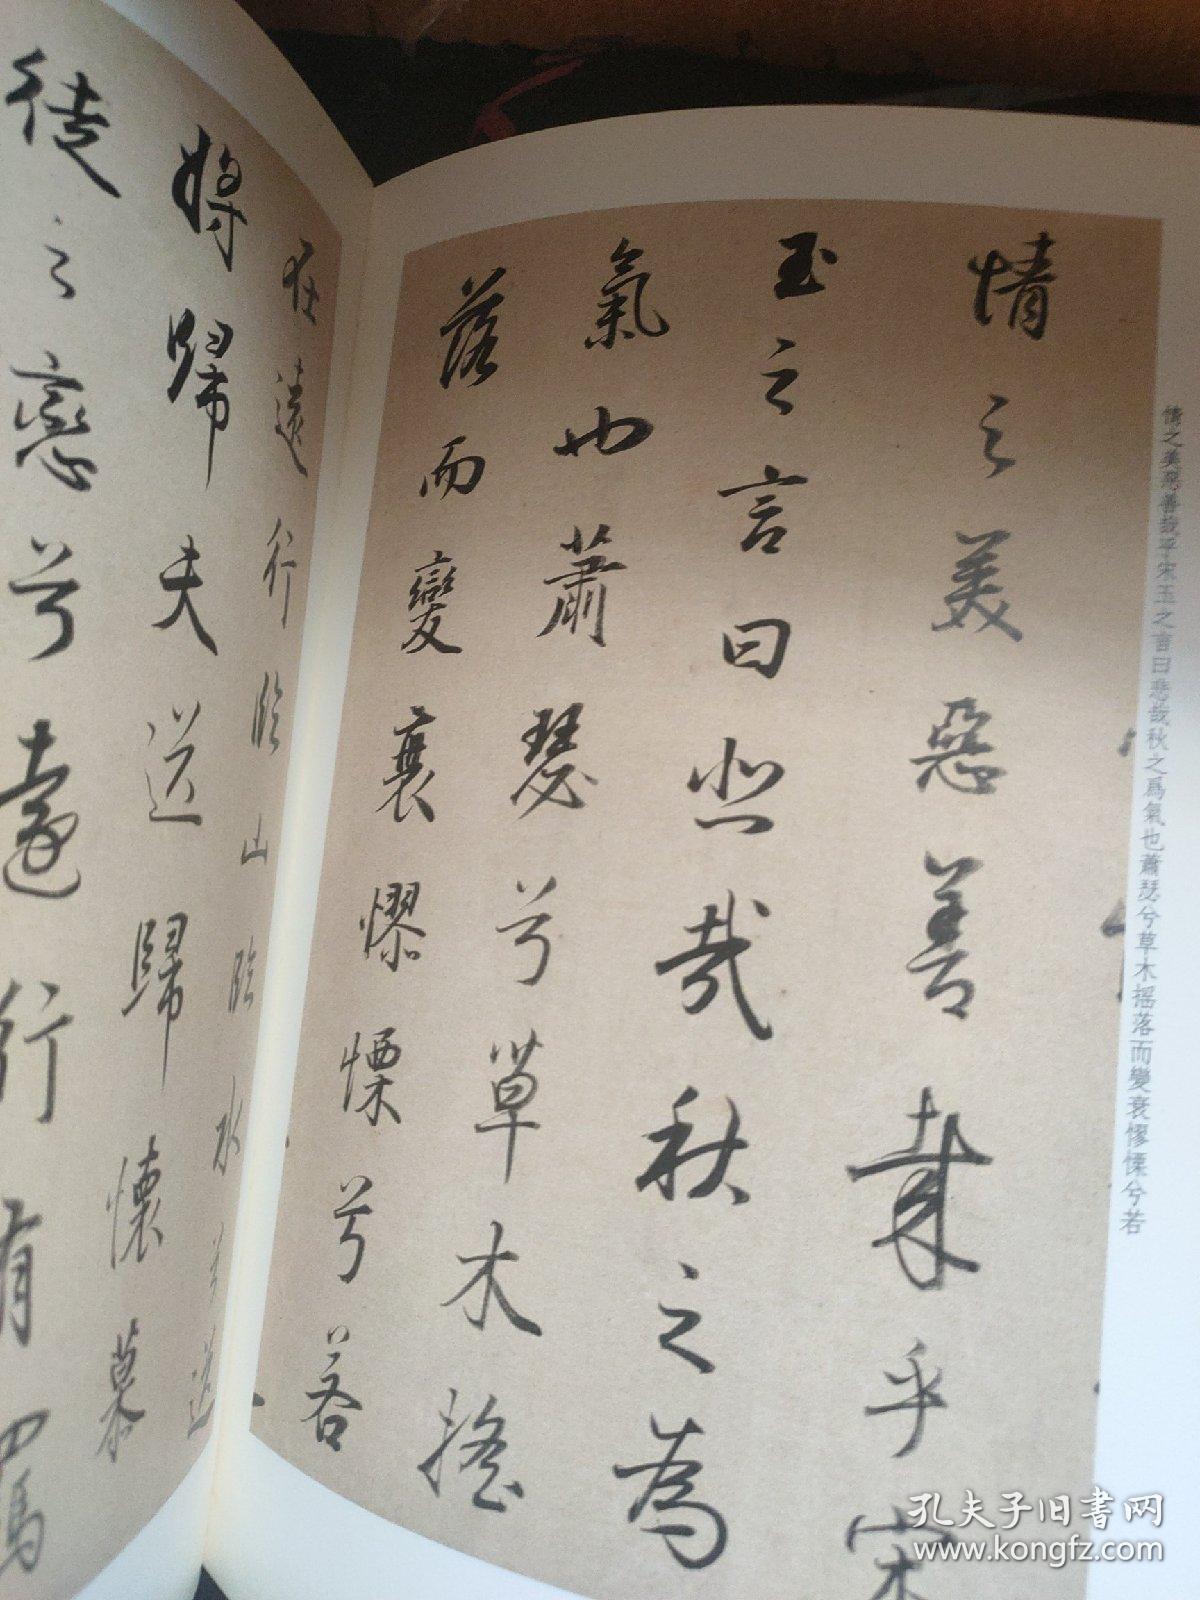 情之美惡善哉乎宋玉之言曰悲哉秋之爲氣也蕭瑟兮草木摇落而變衰憀慄兮若
情之美惡善哉乎宋
玉之言曰悲哉秋之為
氣也蕭瑟兮草木搖
落而變衰憀慄兮若
在遠行臨山臨水
將歸夫送歸懷慕
徒之戀兮遠行有
孔夫子旧書网
www.kongfz.com